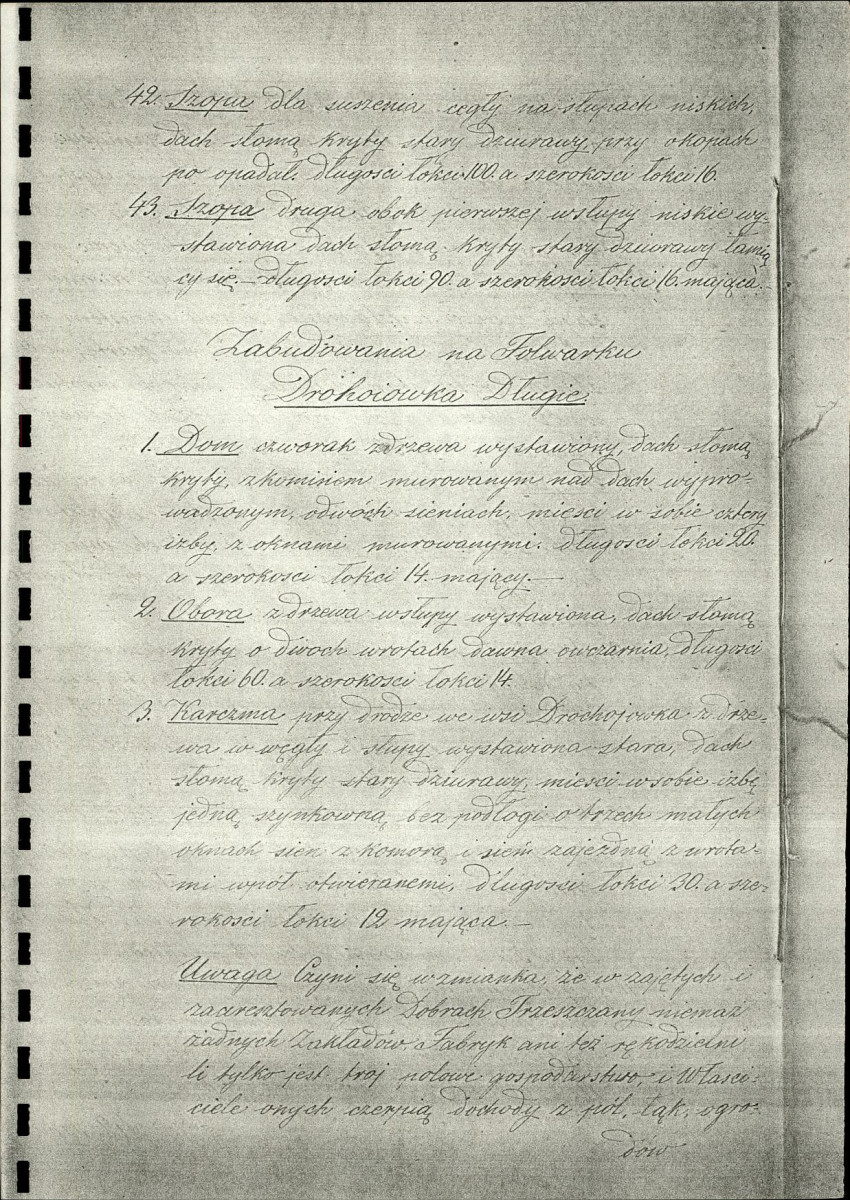 42. Szopa dla suszenia cegły na słupach niskich,
dach słomą kryty stary dziurawy, przy okopach
po opadał. długosci łokci 100. a szerokosci łokci 16.
43. Szopa druga obok pierwszej wsłupy niskie wy-
stawiona dach słomą kryty stary dziurawy łamią
cy się. — długosci łokci 90. a szerokości łokci 16. mająca. —
Zabudowania na Folwarku
Dróhoiowka Długie.
1. Dom czworak zdrzewa wystawiony, dach słomą
kryty, zkominem murowanym nad dach wypro-
wadzonym, odwóch sieniach, miesci w sobie cztery
izby, z oknami murowanymi. długosci łokci 20.
a szerokosci łokci 14. mający. —
2. Obora zdrzewa wsłupy wystawiona, dach słomą
kryty o dwoch wrotach dawna owczarnia, długosci
łokci 60. a szerokosci łokci 14.
3. Karczma przy drodze we wsi Drochojowka z drze-
wa w węgły i słupy wystawiona stara, dach
słomą kryty stary dziurawy, miesci wsobie izbę
jedną szynkowną bez podłogi o trzech małych
oknach sien z komorą i sień zajezdną z wrota-
mi wpół otwieranemi, długosci łokci 30. a sze-
rokosci łokci 12 mająca. —
Uwaga Czyni się wzmianka, że w zajętych i
zaaresztowanych Dobrach Trzeszczany niemaź
żadnych Zakładów, Fabryk ani też rękodzielni
li tylko jest troj polowe gospodarstwo, i Właści-
ciele onych czerpią dochody z pól, łąk, ogro-
dów